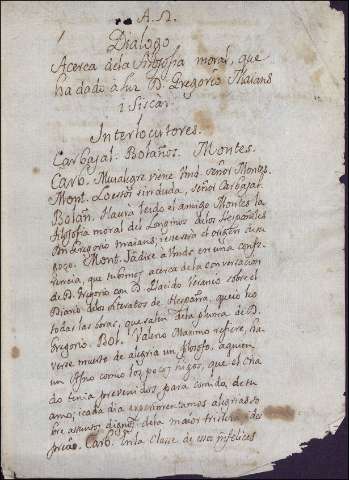 A. N.
Dialogo
Acerca dela Filosofia moral, que
ha dado à luz D. Gregorio Maians
i Siscar.
Interlocutores.
Carbajal. Bolaños. Montes.
Carb. Mui alegre viene Vmd señor Montes.
Mont. Lo estoi sin duda, señor Carbajal.
Bolañ. Havrà leido el amigo Montes la
Filosofia moral del Longinos delos Españoles
Don Gregorio Maians;
Mont. Ià dixe a Vmds en una confe-
rencia, que tubimos acerca dela conversacion
de D. Gregorio con D. Placido Veranio sobre el
Diario delos Literatos de España, que io leo
todas las obras, que salen dela pluma de D.
Gregorio. Bol. Valerio Maximo refiere, ha-
verse muerto de alegria un Filosofo, a quien
un Asno comio los pocos higos, que el cria-
do tenia prevenidos para comida de su
amo; i cada dia experimentamos alegrias so-
bre assuntos dignos dela maior tristeza, i des-
precio. Carb. En la Classe de essos infelices